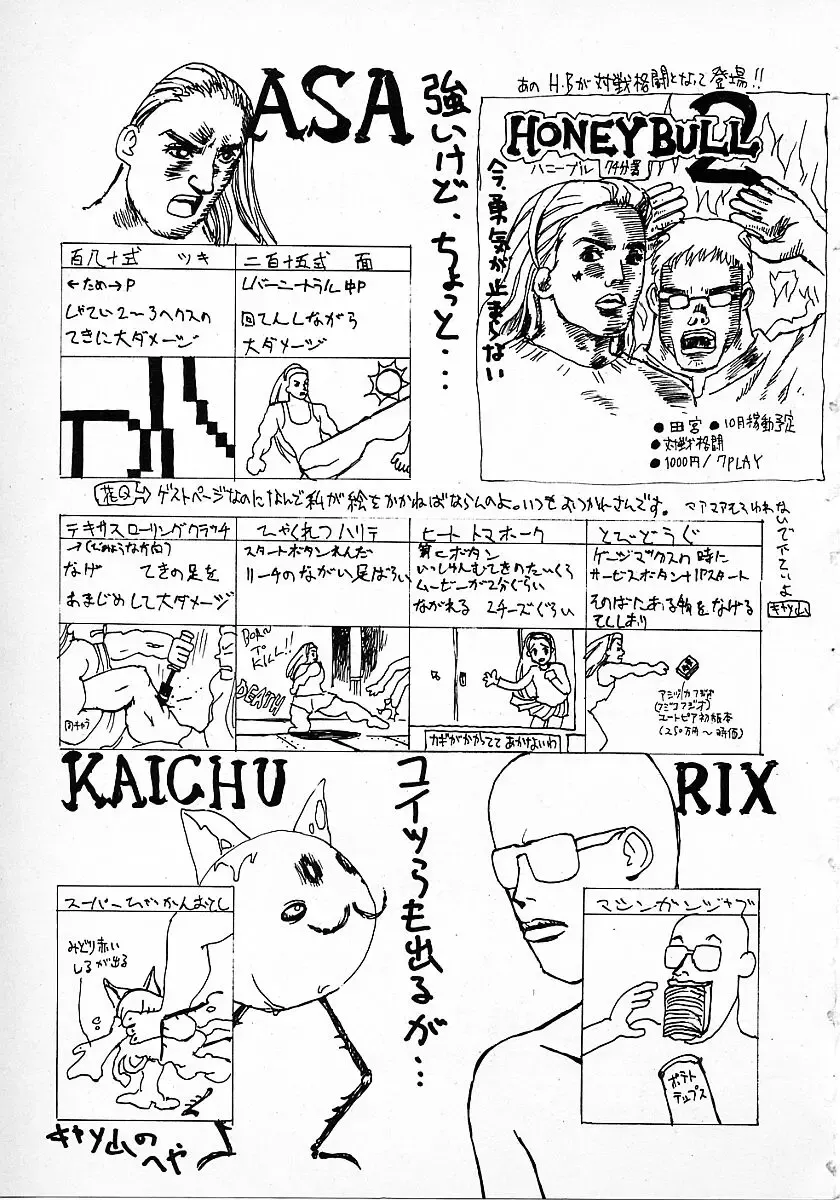 ASA
強いけど、ちょっと・・・
あの H・Bが対戦格闘となって登場!!
HONEY BULL 2
ハニーブル 74分署
今、勇気が止まらない
●田宮 ●10月稼動予定
●対戦格闘
●1000円/7PLAY
百八十式 ツキ
←ため→P
してい2〜3ヘクスの
てきに大ダメージ
二百十五式 面
レバーニュートラル中P
回てんしながら
大ダメージ
ゲストページなのになんで私が絵をかかねばならんのよ。いつもおつかれさんです。
マアマアそういわれないで下さいよ
キャメ山
テキサスローリングクラッチ
なげ てきの足を
あまじめして大ダメージ
ひゃくれつハリテ
スタートボタンれんだ
リーチのながい足ばらい
BORN TO KILL!!
DEATH
ヒート トマホーク
ボタン
いっしゅんむてきのたつくら
ムービーが2分ぐらい
ながれる 2チーズぐらい
カギがかかってて あかないわ
とびどうぐ
ゲージマックスの時に
サービスボタン+1Pスタート
そのばにある物をなげる
アミツカフジオ
(フジコフジオ)
ユートピア初版本
(250万円〜時価)
KAICHU
コイツらも出るが・・・
RIX
スーパーひゃっかんおとし
みどり赤い
しるが出る
マシンガンジャブ
ポテト
チップス
キャメ山の
へや